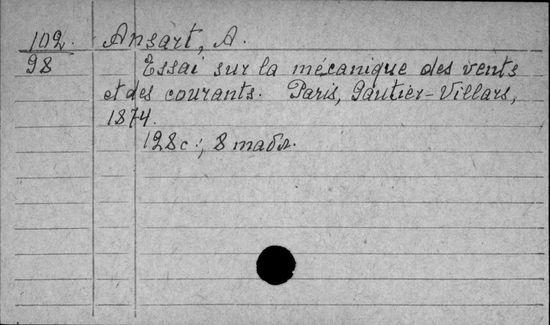 102. Ansart, A.
98 Essai sur la mécanique des vents
et des courants. Paris, Gautier-Villars,
1874.
128 с.; 8 табл.